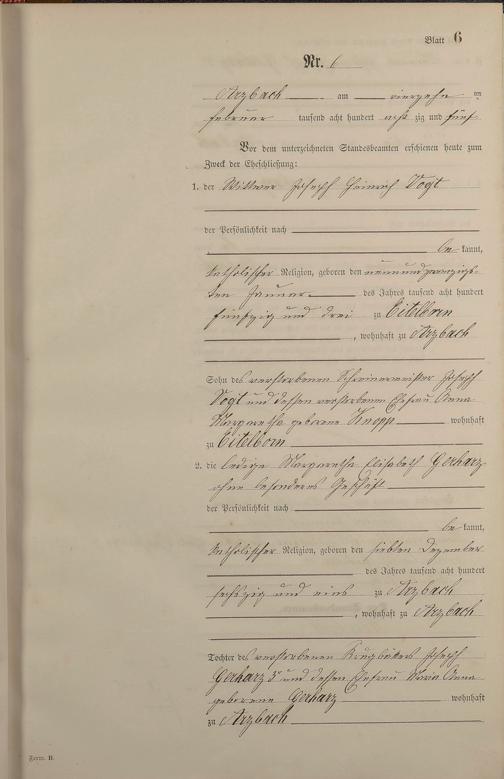 Blatt 6
Nr. 6
Arzbach am vierzehn ten
Februar tausend acht hundert acht zig und fünf
Vor dem unterzeichneten Standesbeamten erschienen heute zum
Zweck der Eheschließung:
1. der Wittwer Joseph Heinrich Vogt
der Persönlichkeit nach
be kannt,
katholischer Religion, geboren den neunundzwanzig-
sten Januar des Jahres tausend acht hundert
fünfzig und drei zu Eitelborn
, wohnhaft zu Arzbach
Sohn des verstorbenen Schreinermeister Joseph
Vogt und dessen verstorbenen Ehefrau Anna
Margaretha geborene Knopp wohnhaft
zu Eitelborn
2. die ledige Margaretha Elisabeth Gerharz
ohne besonderes Geschäft
der Persönlichkeit nach
be kannt,
katholischer Religion, geboren den siebten Dezember
des Jahres tausend acht hundert
sechszig und eins zu Arzbach
, wohnhaft zu Arzbach
Tochter des verstorbenen Krugbäckers Joseph
Gerharz und dessen Ehefrau Maria Anna
geborene Gerharz wohnhaft
zu Arzbach
Form. B.